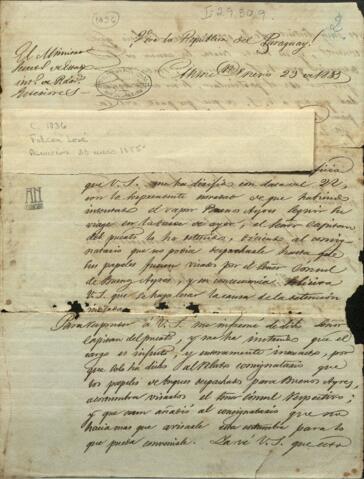 1936
I-29.30.9
2
Viva la Republica del Paraguay!
El Ministro
Asuncion Enero 23 de 1855
C. 1936
Falcon José
Asuncion 23 enero 1855
AN
que V.S. me ha dirijido con data del 22,
con la de que habiendo
intentado el vapor Buenos Ayres seguir su
viaje en la tarde de ayer, el Señor Capitan
del puerto lo ha detenido, diciendo al consig-
natario que no podia despacharle hasta que
sus papeles fuesen visados por el Señor Consul
de Buenos Ayres, y en consecuencia
V.S. que se haga cesar la causa de la detencion
indicada.
Para responder á V.S. me informe de dicho Señor
Capitan del puerto, y me ha instruido que el
cargo es infiel, y enteramente inexacto, por
que solo ha dicho al consignatario que
los papeles de buques despachados para Buenos Ayres
acostumbra visarlos el Señor Consul respectivo;
y que aun añadió al consignatario que no
hacia mas que avisarle esta costumbre para lo
que pueda convenirle. V.S. que esta